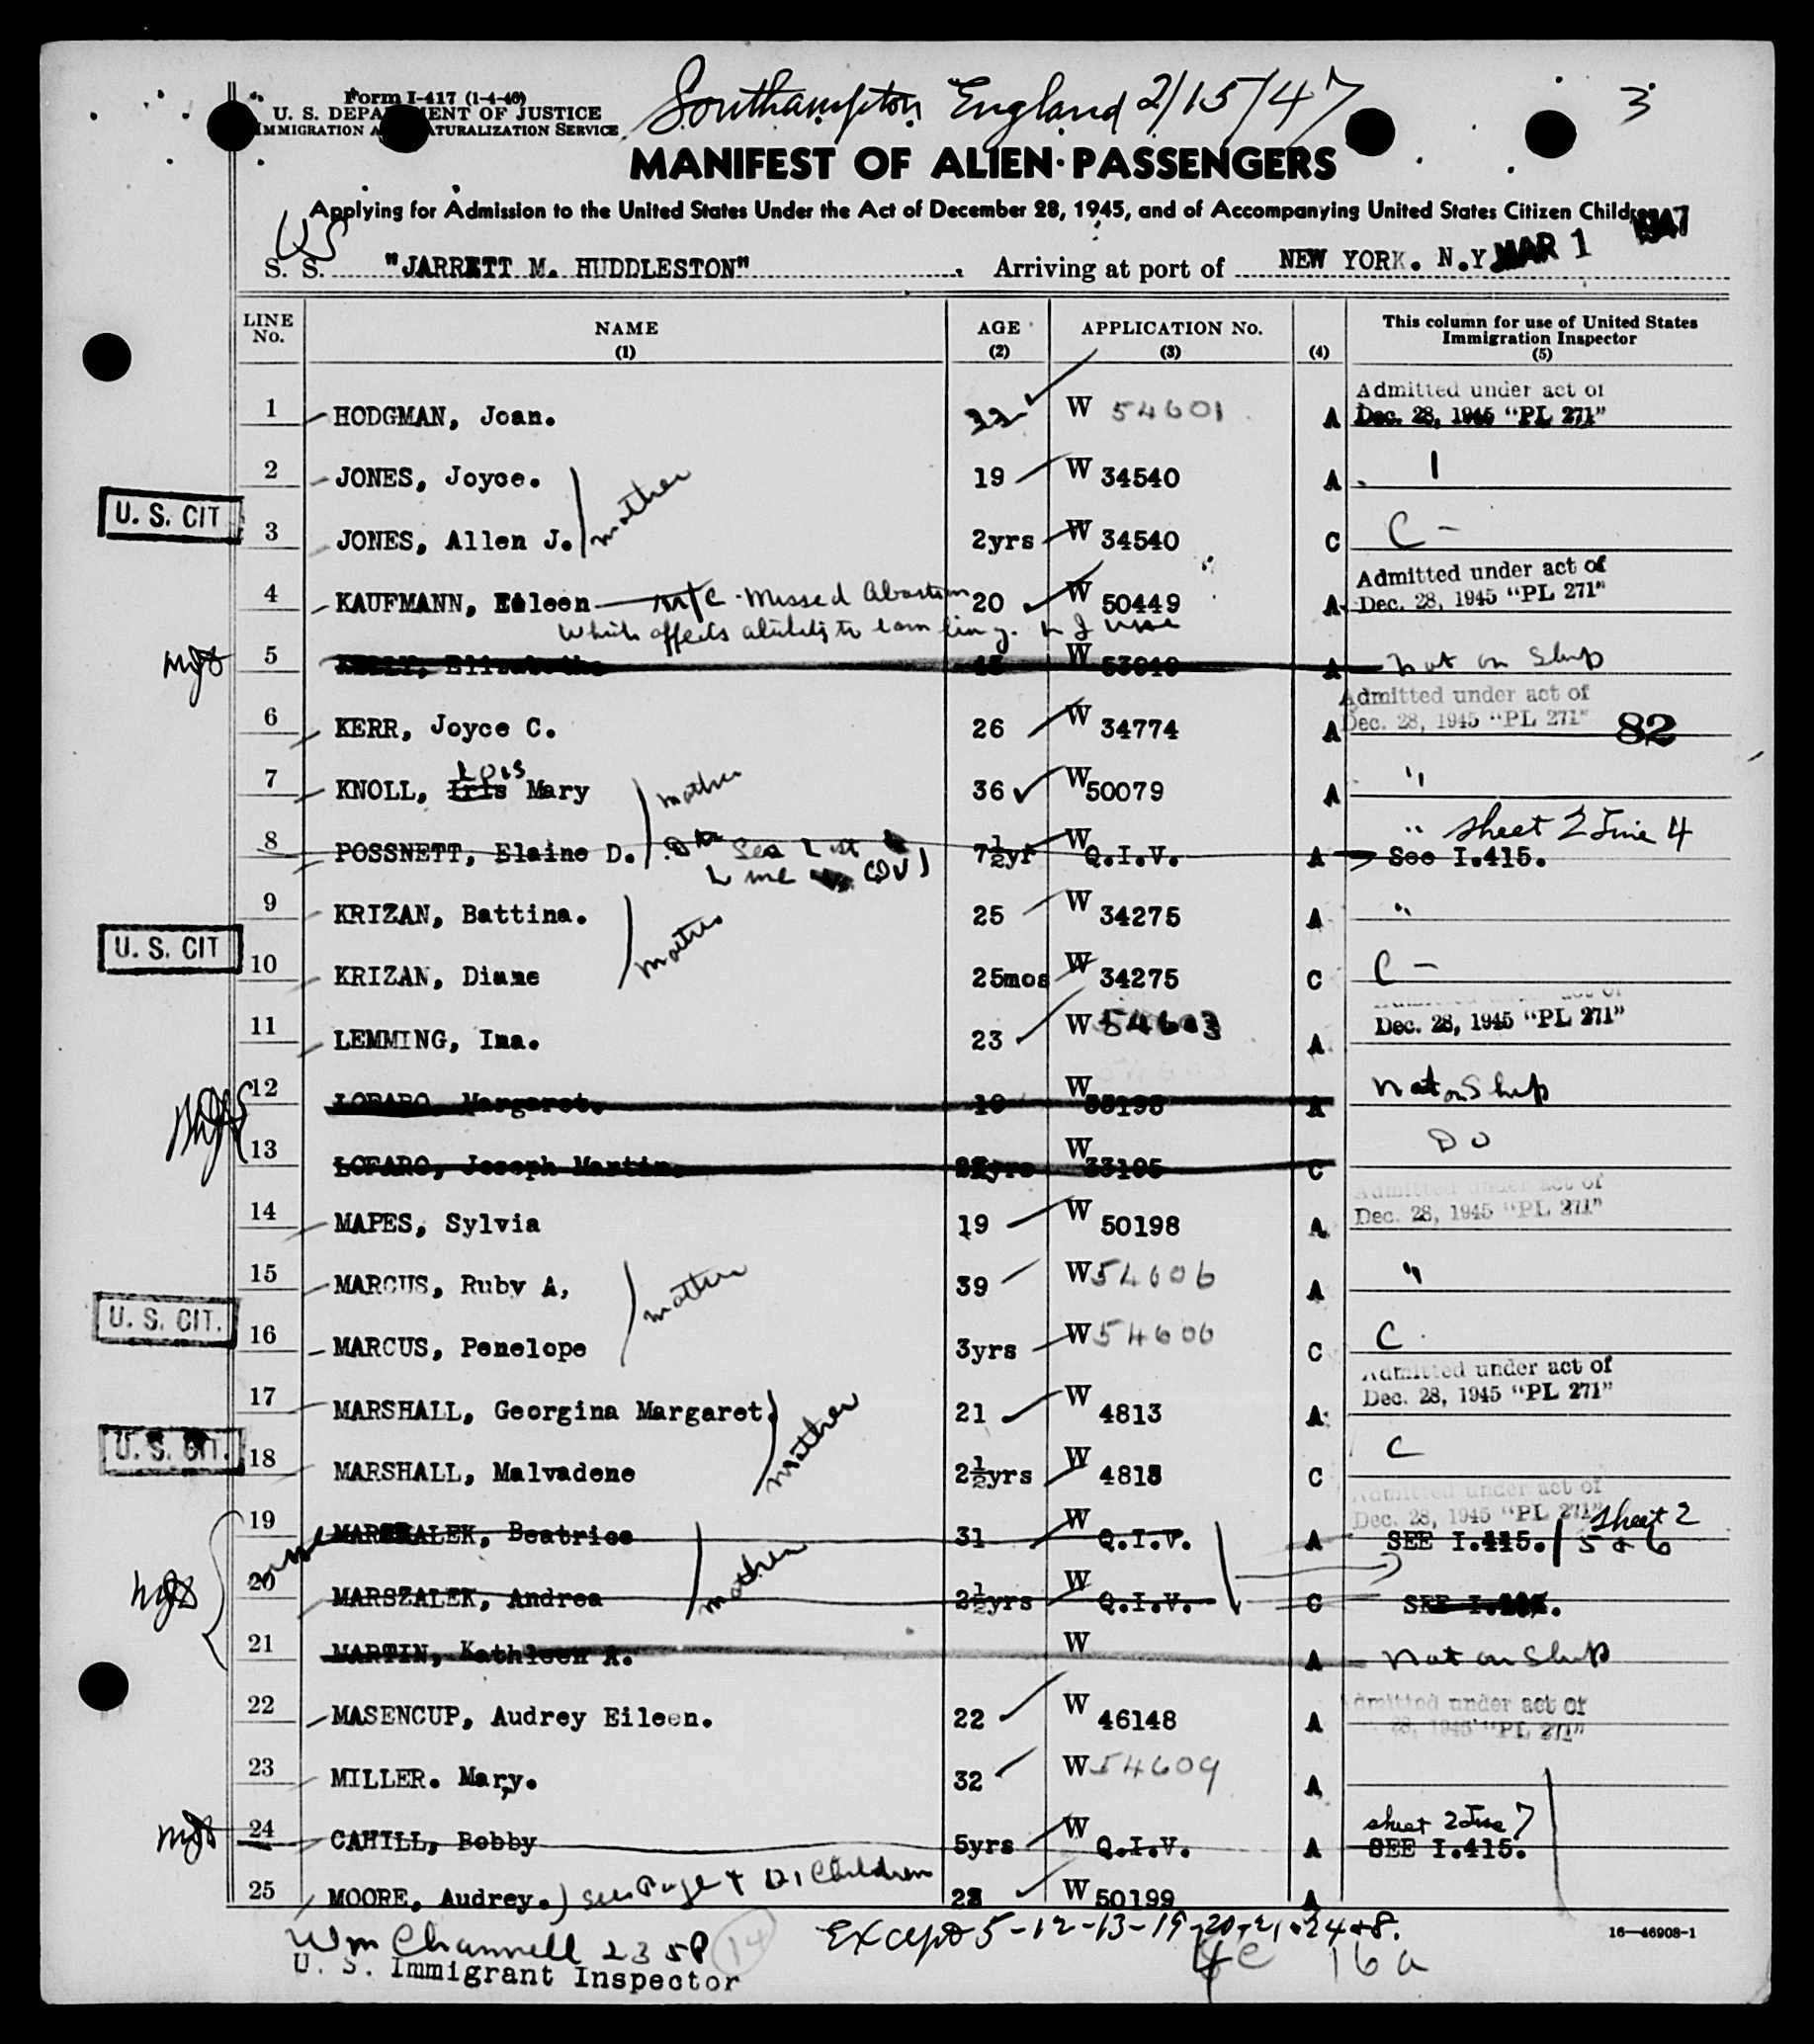 Form I-417 (1-4-46)
U. S. DEPARTMENT OF JUSTICE
IMMIGRATION AND NATURALIZATION SERVICE
Southampton England 2/15/47
3
MANIFEST OF ALIEN PASSENGERS
Applying for Admission to the United States Under the Act of December 28, 1945, and of Accompanying United States Citizen Children
S. S. "JARRETT M. HUDDLESTON" , Arriving at port of NEW YORK. N.Y. MAR 1 1947
LINE No. NAME (1) AGE (2) APPLICATION No. (3) (4) This column for use of United States Immigration Inspector (5)
1 HODGMAN, Joan. W 54601 A Admitted under act of Dec. 28, 1945 "PL 271"
2 JONES, Joyce. mother 19 W 34540 A
U. S. CIT 3 JONES, Allen J. 2yrs W 34540 C C -
4 KAUFMANN, Eileen M/C - Missed Abortion 20 W 50449 A Admitted under act of Dec. 28, 1945 "PL 271"
which affects ability to earn living.
5 W A not on Ship
6 KERR, Joyce C. 26 W 34774 A Admitted under act of Dec. 28, 1945 "PL 271" 82
7 KNOLL, Iris Lois Mary mother 36 W 50079 A "
8 POSSNETT, Elaine D. See List Line 7½yr W Q.I.V. A " sheet 2 line 4 See I.415.
9 KRIZAN, Battina. mother 25 W 34275 A "
U. S. CIT 10 KRIZAN, Diane 25mos W 34275 C C -
11 LEMMING, Ina. 23 W 54603 A Dec. 28, 1945 "PL 271"
12 LOFARO, Margaret. W A not on Ship
13 LOFARO, Joseph Martin. W C DO
14 MAPES, Sylvia 19 W 50198 A Admitted under act of Dec. 28, 1945 "PL 271"
15 MARCUS, Ruby A, mother 39 W 54606 A "
U. S. CIT. 16 MARCUS, Penelope 3yrs W 54606 C C
17 MARSHALL, Georgina Margaret. mother 21 W 4813 A Admitted under act of Dec. 28, 1945 "PL 271"
U. S. CIT. 18 MARSHALL, Malvadene 2½yrs W 4813 C C
19 MARSZALEK, Beatrice mother 31 W Q.I.V. A Admitted under act of Dec. 28, 1945 "PL 271" SEE I.415. sheet 2 5 & 6
20 MARSZALEK, Andrea 2½yrs W Q.I.V. C SEE
21 MARTIN, Kathleen A. W A not on Ship
22 MASENCUP, Audrey Eileen. 22 W 46148 A Admitted under act of 28, 1945 "PL 271"
23 MILLER. Mary. 32 W 54609 A
24 CAHILL, Bobby 5yrs W Q.I.V. A sheet 2 line 7 SEE I.415.
25 MOORE, Audrey. See Page Children W 50199 A
Wm Channell 2358 14
U. S. Immigrant Inspector
Except 5-12-13-19-20-21-24&8.
4C 16a
16—46908-1